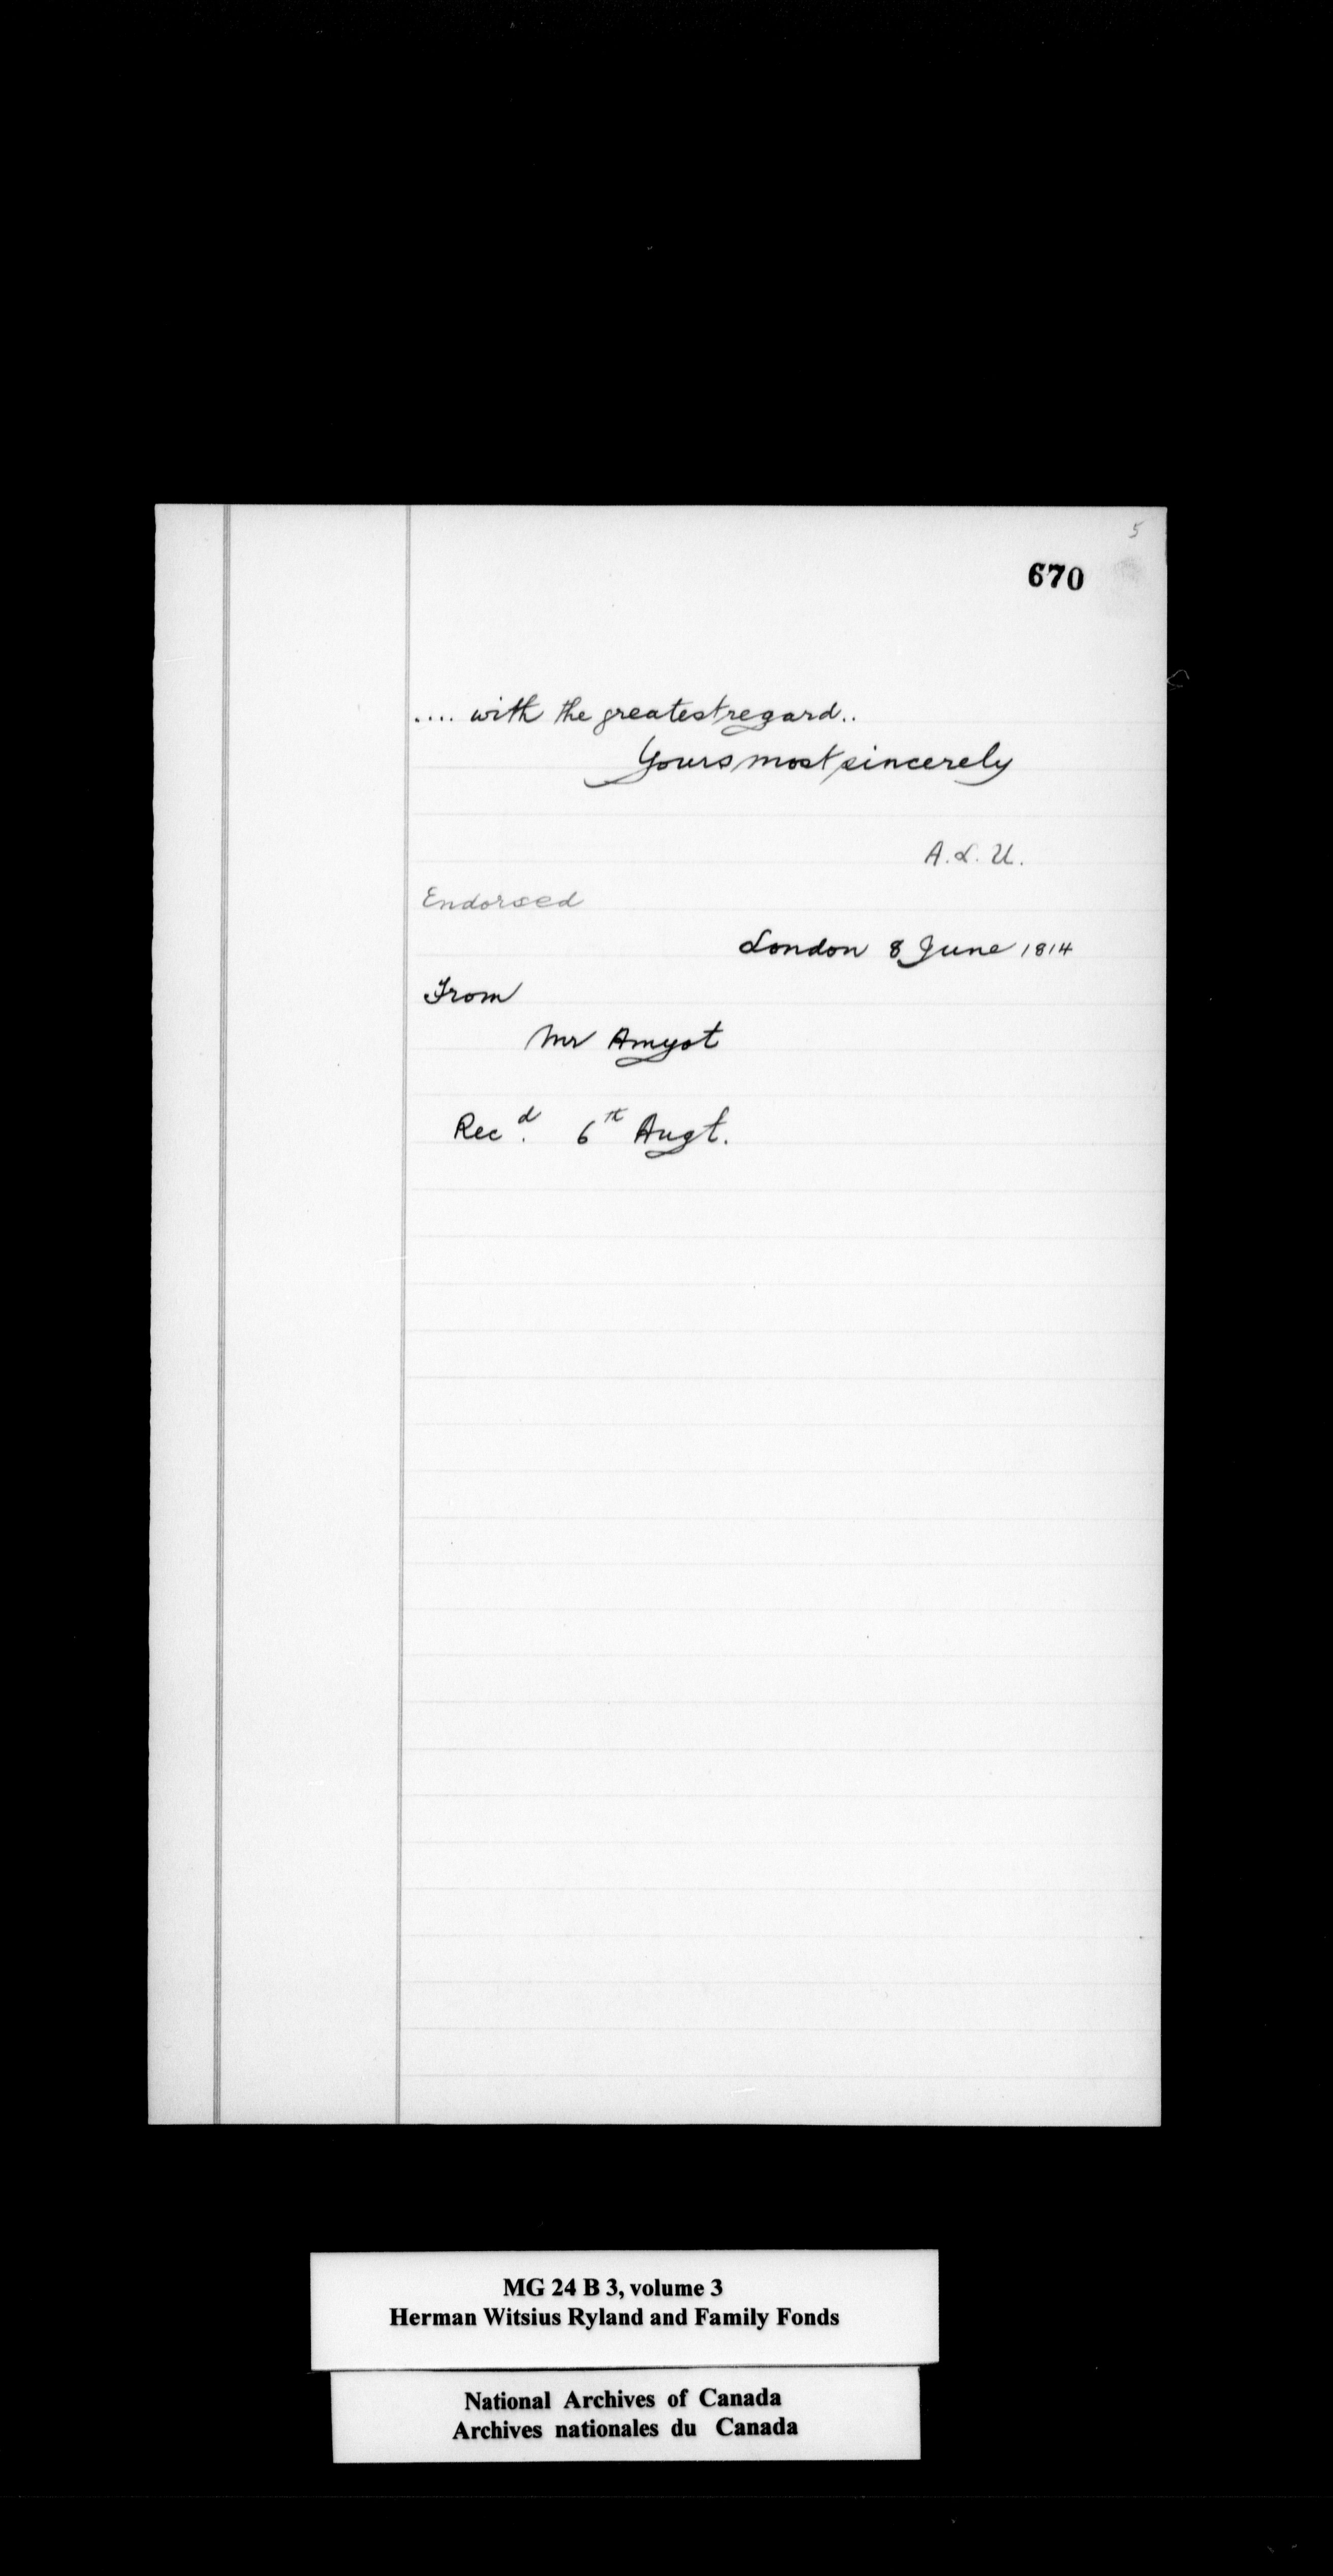 5
670
.... with the greatest regard..
Yours most sincerely
A. L. U.
Endorsed
London 8 June 1814
From
Mr Amyot
Rec^d. 6^th Augt.
MG 24 B 3, volume 3
Herman Witsius Ryland and Family Fonds
National Archives of Canada
Archives nationales du Canada